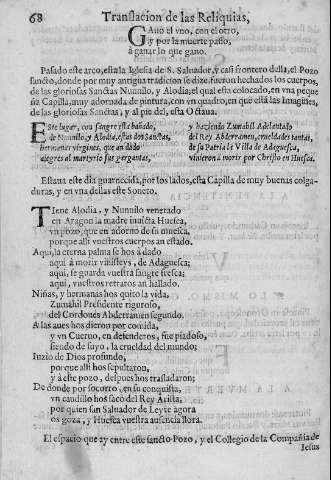 68 Translacion de las Reliquias,
Gauo el vno, con el otro,
y por la muerte passo,
à ganar lo que gano.
Passado este arco, està la Iglesia de S. Saluador, y casi frontero della, el Pozo
sancto, donde por muy antigua tradicion se dize, fueron hechados los cuerpos,
de las gloriosas Sanctas Nunilo, y Alodia; el qual esta colocado, en vna peque
ña Capilla, muy adornada de pintura, con vn quadro, en que està las Imagines,
de las gloriosas Sanctas, y al pie del, esta Octaua.
Este lugar, con sangre està bañado,
de Nunilo, y Alodia, estas dos sanctas,
hermanas virgines, que an dado
alegres al martyrio sus gargantas,
y haziendo Zumahil Adelantado
del Rey Abderramen, crueldades tantas,
de su Patria le Villa de Adaguesca,
vinieron à morir por Christo en Huesca.
Estaua este dia guarnecida, por los lados, esta Capilla de muy buenas colga-
duras, y en vna dellas este Soneto.
Tiene Alodia, y Nunnilo venerado
en Aragon la madre inuicta Huesca,
vn pozo, que en adorno de si muesca,
porque alli vuestros cuerpos an estado.
Aqui, la eterna palma se hos à dado
aqui à morir vinisteys, de Adaguesca;
aqui, se guarda vuestra sangre fresca;
aqui, vuestros retraros an hallado.
Niñas, y hermanas hos quito la vida,
Zumahil Presidente riguroso,
del Cordoues Abderramen segundo.
A las aues hos dieron por comida,
y vn Cueruo, en defenderos, fue piadoso,
siendo de suyo, la crueldad del mundo;
Iuzio de Dios profundo,
por que alli hos sepultaron,
y à este pozo, despues hos trasladaron;
De donde por socorro, en su conquista,
vn caudillo hos sacò del Rey Arista,
por quien san Saluador de Leyre agora
os goza, y Huesca vuestra ausencia llora.
El espacio que ay entre este sancto Pozo, y el Collegio de la Compañia de
Iesus